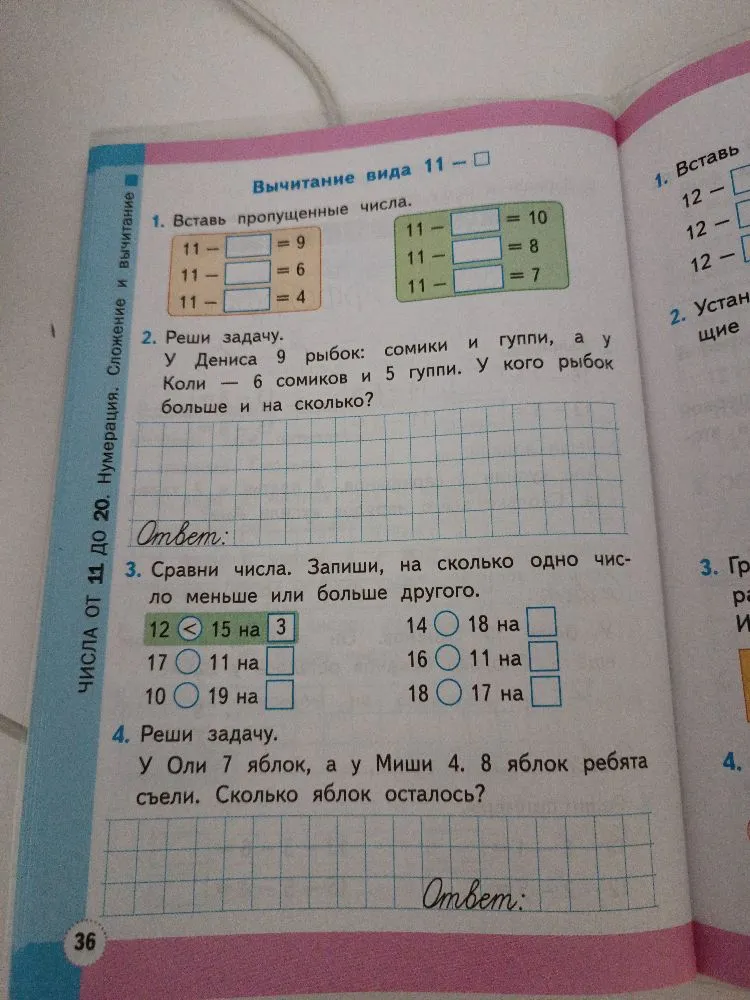 Вычитание вида 11 – □
1. Вставь пропущенные числа.
11 – □ = 9
11 – □ = 6
11 – □ = 4
11 – □ = 10
11 – □ = 8
11 – □ = 7
2. Реши задачу.
У Дениса 9 рыбок: сомики и гуппи, а у
Коли — 6 сомиков и 5 гуппи. У кого рыбок
больше и на сколько?
Ответ:
3. Сравни числа. Запиши, на сколько одно чис-
ло меньше или больше другого.
12 < 15 на 3
17 ○ 11 на □
10 ○ 19 на □
14 ○ 18 на □
16 ○ 11 на □
18 ○ 17 на □
4. Реши задачу.
У Оли 7 яблок, а у Миши 4. 8 яблок ребята
съели. Сколько яблок осталось?
Ответ:
36
ЧИСЛА ОТ 11 ДО 20. Нумерация. Сложение и вычитание
1. Вставь
12 –
12 –
12 –
2.
щие
3.
4.